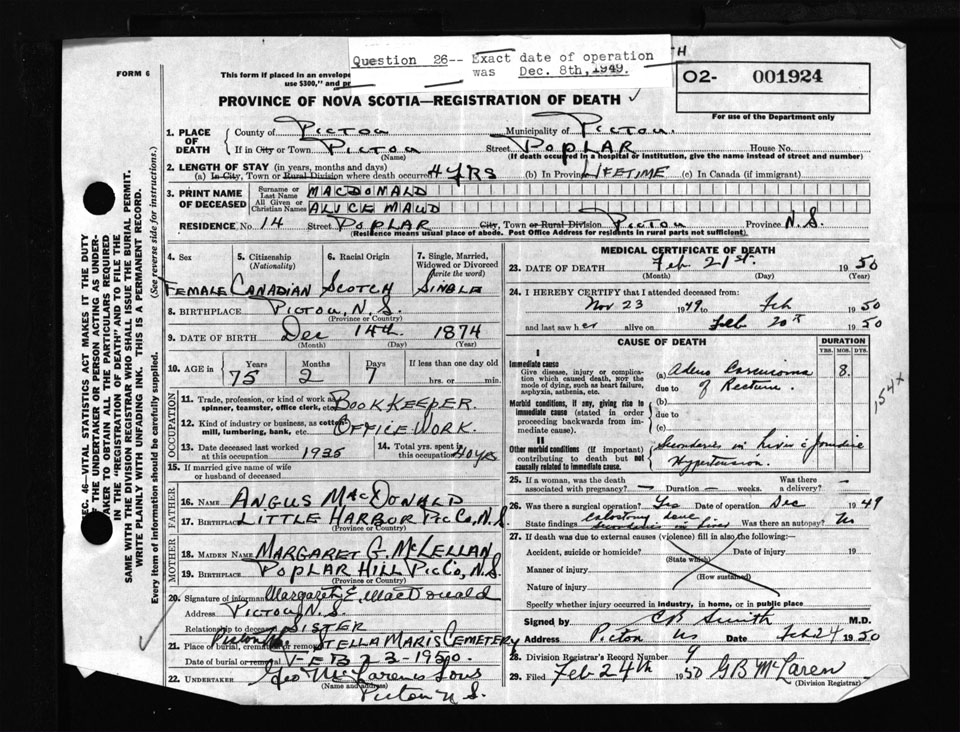 Question 26-- Exact date of operation
was Dec. 8th, 1949.
FORM 6
This form if placed in an envelope
use $300," and pr
H
02- 001924
PROVINCE OF NOVA SCOTIA—REGISTRATION OF DEATH ✓
For use of the Department only
1. PLACE OF DEATH
County of Pictou Municipality of Pictou.
If in City or Town Pictou (Name) Street POPLAR House No.
(If death occurred in a hospital or institution, give the name instead of street and number)
2. LENGTH OF STAY (in years, months and days)
(a) In City, Town or Rural Division where death occurred 44 YRS (b) In Province LIFETIME (c) In Canada (if immigrant)
3. PRINT NAME OF DECEASED
Surname or Last Name MACDONALD
All Given or Christian Names ALICE MAUD
RESIDENCE No. 14 Street POPLAR City, Town or Rural Division PICTOU Province N.S.
(Residence means usual place of abode. Post Office Address for residents in rural parts not sufficient)
4. Sex 5. Citizenship (Nationality) 6. Racial Origin 7. Single, Married, Widowed or Divorced (write the word)
FEMALE CANADIAN SCOTCH SINGLE
8. BIRTHPLACE PICTOU, N.S.
(Province or Country)
9. DATE OF BIRTH Dec 14th 1874
(Month) (Day) (Year)
10. AGE in Years Months Days If less than one day old
75 2 7 hrs. or min.
OCCUPATION
11. Trade, profession, or kind of work as spinner, teamster, office clerk, etc. BOOKKEEPER.
12. Kind of industry or business, as cotton mill, lumbering, bank, etc. OFFICE WORK.
13. Date deceased last worked at this occupation 1925 14. Total yrs. spent in this occupation 40 yrs
15. If married give name of wife or husband of deceased
FATHER
16. NAME ANGUS MACDONALD
17. BIRTHPLACE LITTLE HARBOR PIC CO, N.S.
(Province or Country)
MOTHER
18. MAIDEN NAME MARGARET G. MCLELLAN
19. BIRTHPLACE POPLAR HILL PIC CO, N.S.
(Province or Country)
20. Signature of informant Margaret E. MacDonald
Address PICTOU, N.S.
Relationship to deceased SISTER
21. Place of burial, cremation or removal STELLA MARIS CEMETERY
Date of burial or removal FEB 23-1950.
22. UNDERTAKER Geo McLarens Sons
(Name and Address)
Pictou N.S.
MEDICAL CERTIFICATE OF DEATH
23. DATE OF DEATH Feb 21st. 1950
(Month) (Day)
24. I HEREBY CERTIFY that I attended deceased from:
Nov 23 1949 to Feb 1950
and last saw her alive on Feb 20th 1950
CAUSE OF DEATH DURATION
YRS. MOS. DYS.
I
Immediate cause
Give disease, injury or complication which caused death, not the mode of dying, such as heart failure, asphyxia, asthenia, etc.
(a) Adeno Carcinoma 8.
due to of Rectum.
154x
Morbid conditions, if any, giving rise to immediate cause (stated in order proceeding backwards from immediate cause).
(b)
due to
(c)
II
Other morbid conditions (if important) contributing to death but not causally related to immediate cause.
Secondaries in Liver c Jaundice
Hypertension.
25. If a woman, was the death associated with pregnancy? — Duration — weeks. Was there a delivery? —
26. Was there a surgical operation? Yes Date of operation Dec 1949
State findings Colostomy done Secondaries in liver Was there an autopsy?
27. If death was due to external causes (violence) fill in also the following:
Accident, suicide or homicide? Date of injury 19
(State which)
Manner of injury
(How sustained)
Nature of injury
Specify whether injury occurred in industry, in home, or in public place
Signed by CB Smith M.D.
Address Pictou NS Date Feb 24 1950
28. Division Registrar's Record Number 9
29. Filed Feb 24th 1950 GB McLaren
(Division Registrar)
EC. 46—VITAL STATISTICS ACT MAKES IT THE DUTY
F THE UNDERTAKER OR PERSON ACTING AS UNDER-
AKER TO OBTAIN ALL THE PARTICULARS REQUIRED
IN THE "REGISTRATION OF DEATH" AND TO FILE THE
SAME WITH THE DIVISION REGISTRAR WHO SHALL ISSUE THE BURIAL PERMIT.
WRITE PLAINLY WITH UNFADING INK. THIS IS A PERMANENT RECORD.
Every item of information should be carefully supplied. (See reverse side for instructions.)